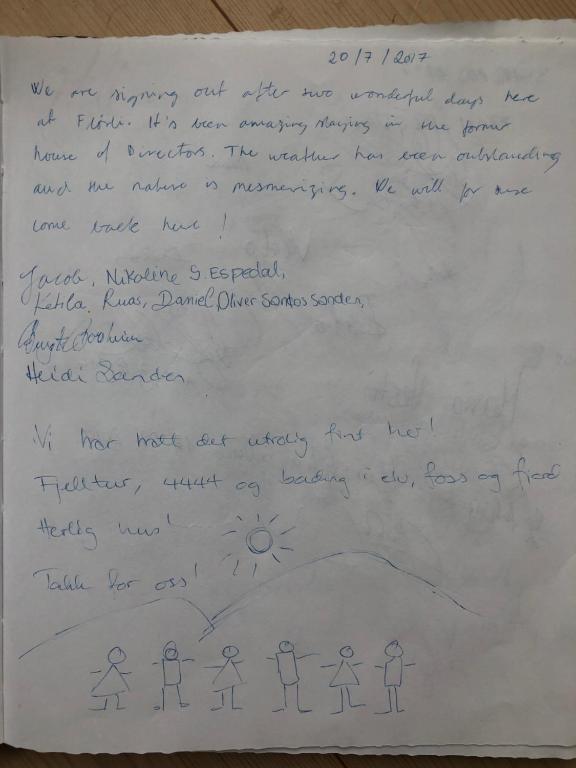 20/7/2017
We are signing out after two wonderful days here
at Flørli. It's been amazing staying in the former
house of Directors. The weather has been outstanding
and the nature is mesmerizing. We will for
come back here!
Jacob, Nikoline S. Espedal,
Ketila Ruas, Daniel, Oliver Santos Sanden,
Heidi Sanden
Vi har hatt det utrolig fint her!
Fjelltur, 4444 og bading i elv, foss og fjord
Herlig hus!
Takk for oss!